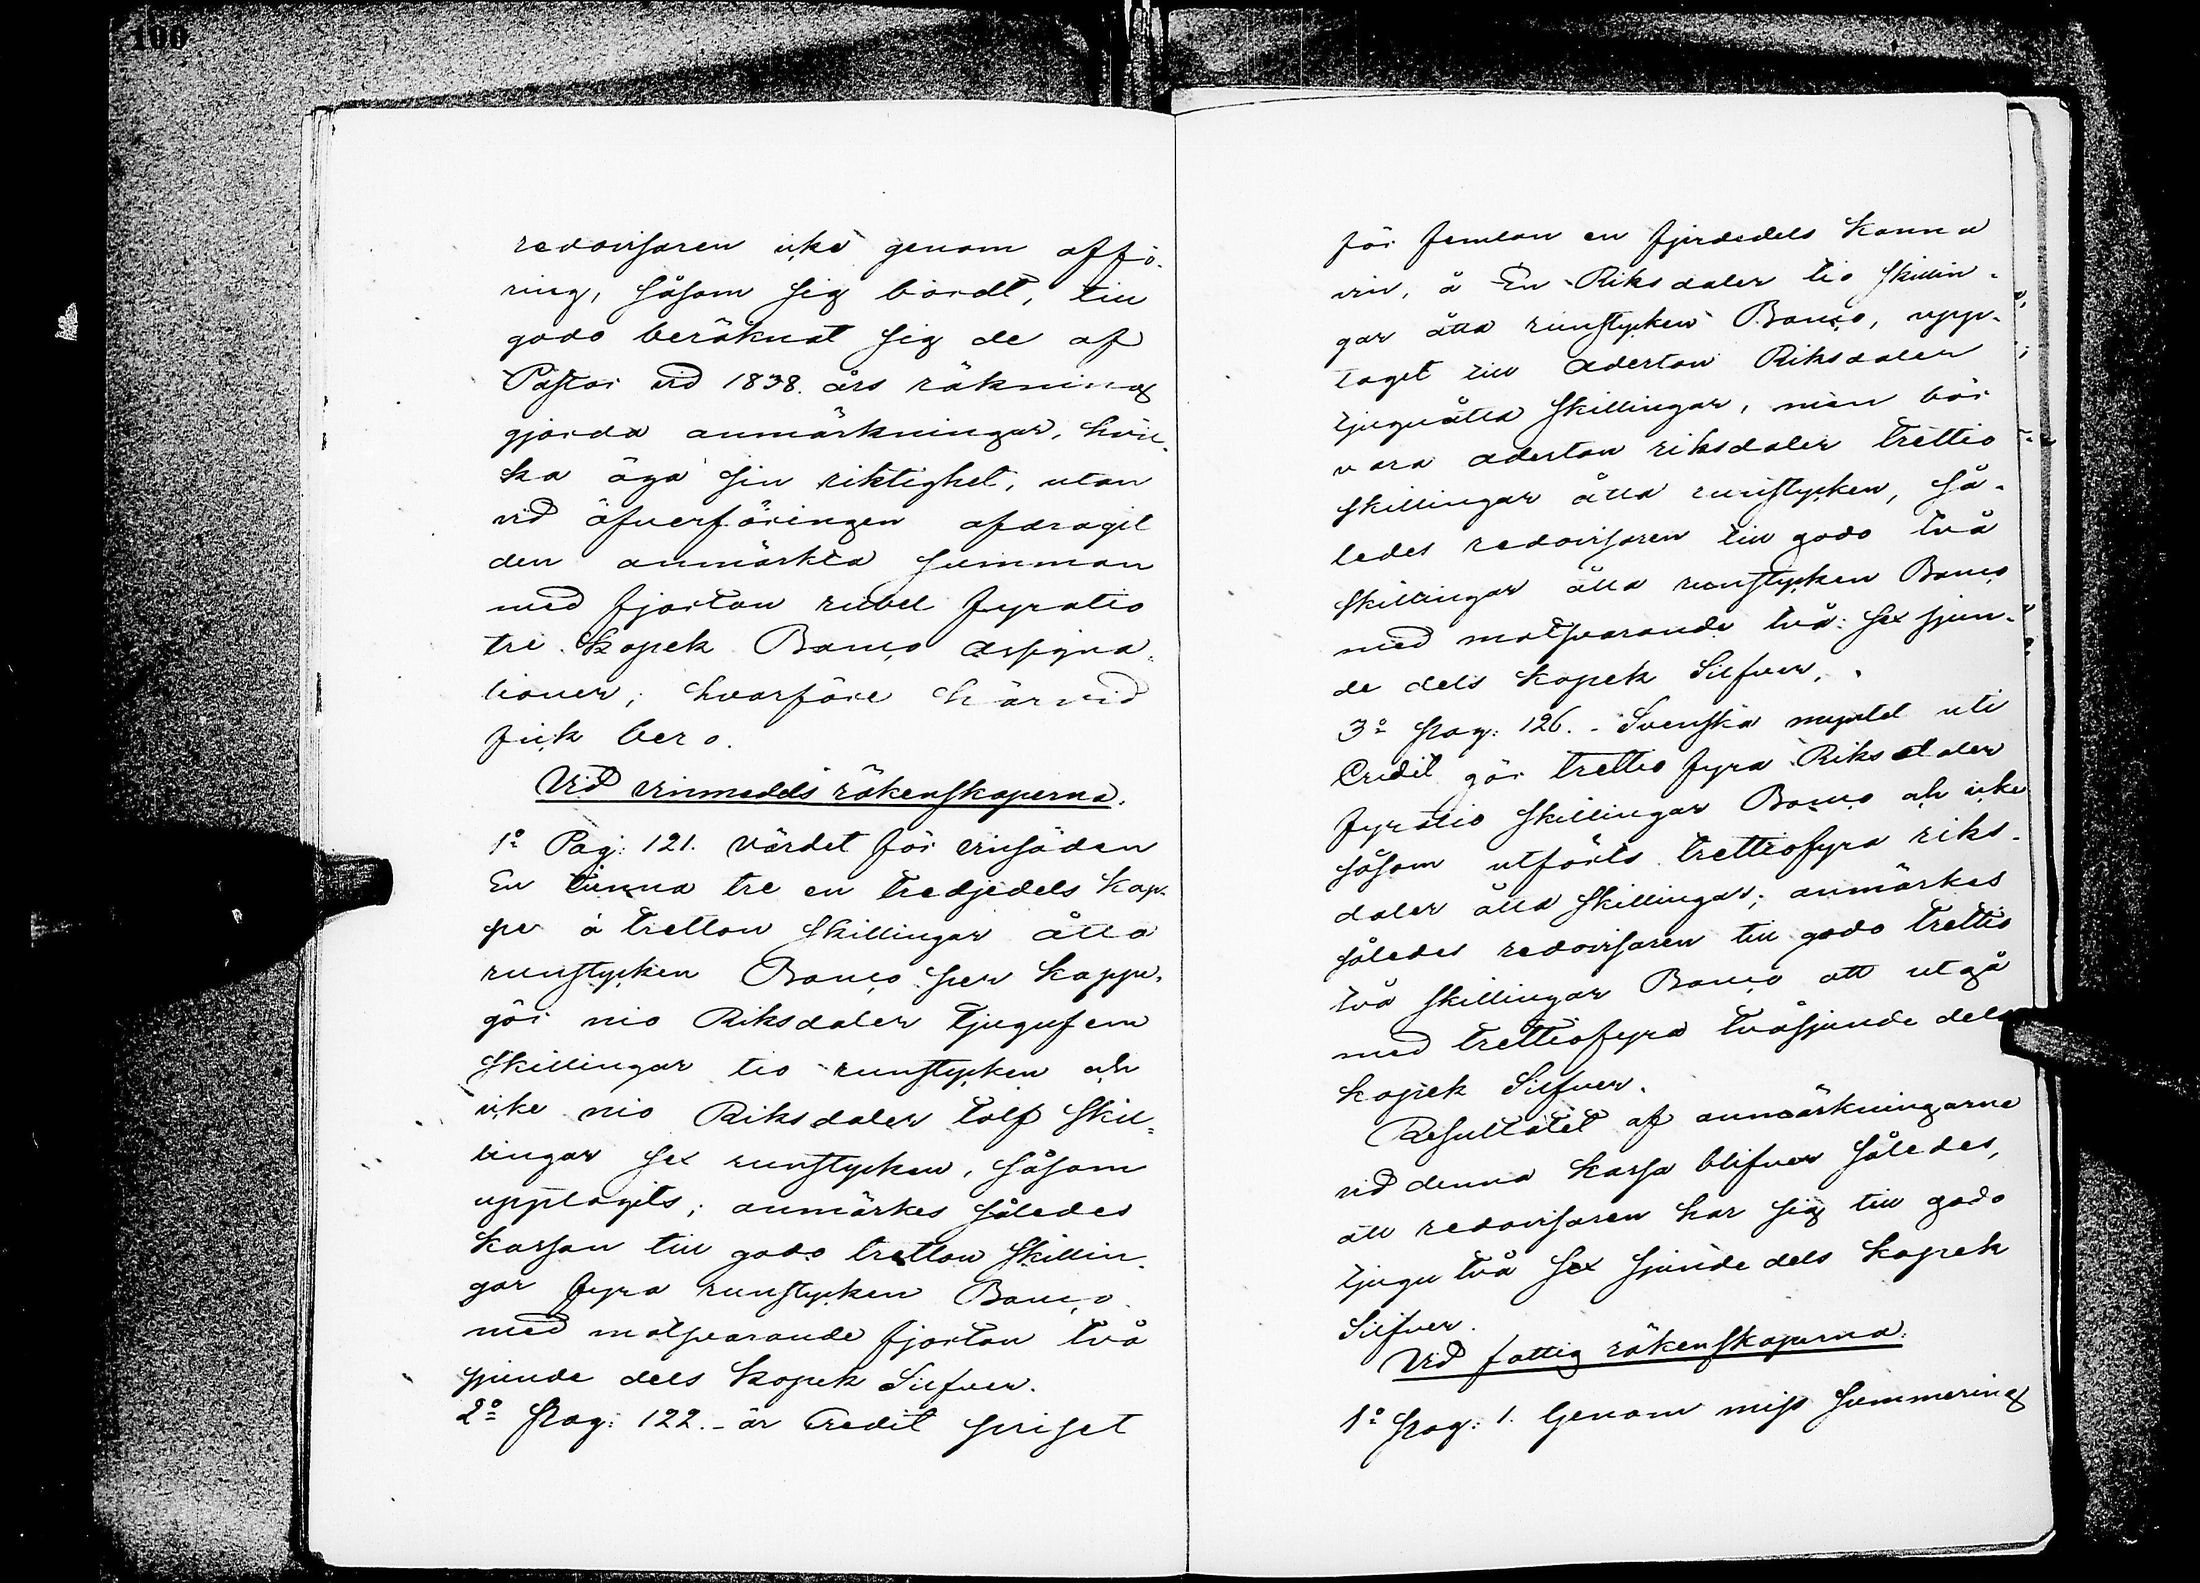 100
redovisaren icke genom affö-
ring, såsom sig bordt, till
godo beräknat sig de af
Pastor vid 1838. års räkning
gjorda anmärkningar, hvil-
ka äga sin riktighet, utan
vid öfverföringen afdragit
den anmärkta summan
med fjorton rubel fyratio
tre kopek Banco assigna-
tioner; hvarföre härvid
fick bero.
Vid vinmedels räkenskaperna.
1º Pag: 121. värdet för vinsäden
En tunna tre en tredjedels kap-
pe á tretton skillingar åtta
runstycken Banco per kappe,
gör nio Riksdaler tjugufem
skillingar tio runstycken och
icke nio Riksdaler tolf skil-
lingar sex runstycken, såsom
upptagits; anmärkes således
kassan till godo tretton skillin-
gar fyra runstycken Banco
med motsvarande fjorton två
sjunde dels kopek Silfver.
2º Pag: 122. - är Credit priset
för femton en fjerdedels kanna
vin, á En Riksdaler tio skillin-
gar åtta runstycken Banco, upp-
taget till aderton Riksdaler
tjuguåtta skillingar, men bör
vara aderton riksdaler trettio
skillingar åtta runstycken, så-
ledes redovisaren till godo två
skillingar åtta runstycken Banco
med motsvarande två: sex sjun-
de dels kopek Silfver.
3º Pag: 126. - Svenska myntet uti
Credit gör trettio fyra Riksdaler
fyratio skillingar Banco och icke
såsom utförts trettiofyra riks-
daler åtta skillingar; anmärkes
således redovisaren till godo trettio
två skillingar Banco att utgå
med trettiofyra tvåsjunde dels
kopek Silfver.
Resultatet af anmärkningarne
vid denna kassa blifver således,
att redovisaren har sig till godo
tjugu två sex sjunde dels kopek
Silfver.
Vid fattig räkenskaperna.
1º Pag: 1. Genom miss summering